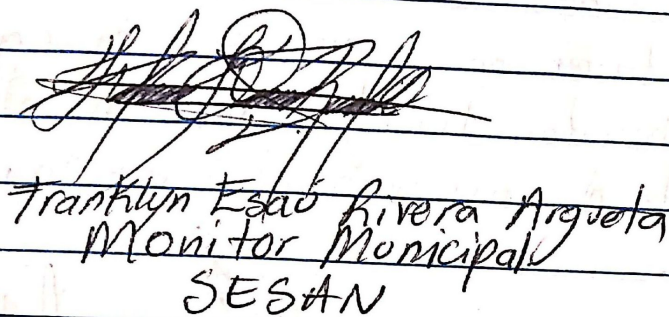 Franklyn Esaú Rivera Argueta
Monitor Municipal
SESAN